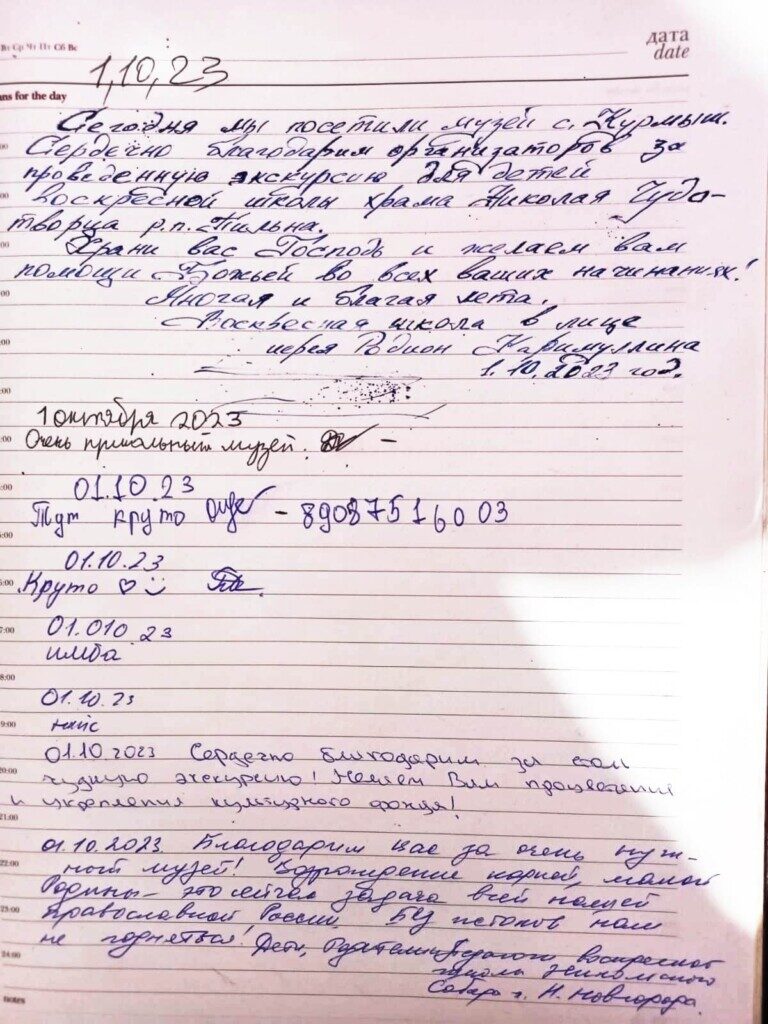 Вт Ср Чт Пт Сб Вс
дата
date
1,10,23
ans for the day
Сегодня мы посетили музей с. Курмыш.
Сердечно благодарим организаторов за
проведённую экскурсию для детей
воскресной школы храма Николая Чудо-
творца р.п. Пильна.
Храни вас Господь и желаем вам
помощи Божьей во всех ваших начинаниях!
Многая и благая лета.
Воскресная школа в лице
иерея Родион Каримуллина
1.10.2023 год.
1 октября 2023
Очень прикольный музей.
01.10.23
Тут круто - 89087516003
01.10.23
Круто ♡
01.010.23
имба
01.10.23
найс
01.10.2023 Сердечно благодарим за
чудную экскурсию! Желаем Вам процветания
и укрепления культурного фонда!
01.10.2023 Благодарим вас за очень нуж-
ный музей! Возрождение корней, малой
Родины - это сейчас задача всей нашей
православной России. Без истоков нам
не подняться! Дети, Родители воскресной
школы
Собора г. Н. Новгорода.
17:00
18:00
19:00
20:00
21:00
22:00
23:00
24:00
notes